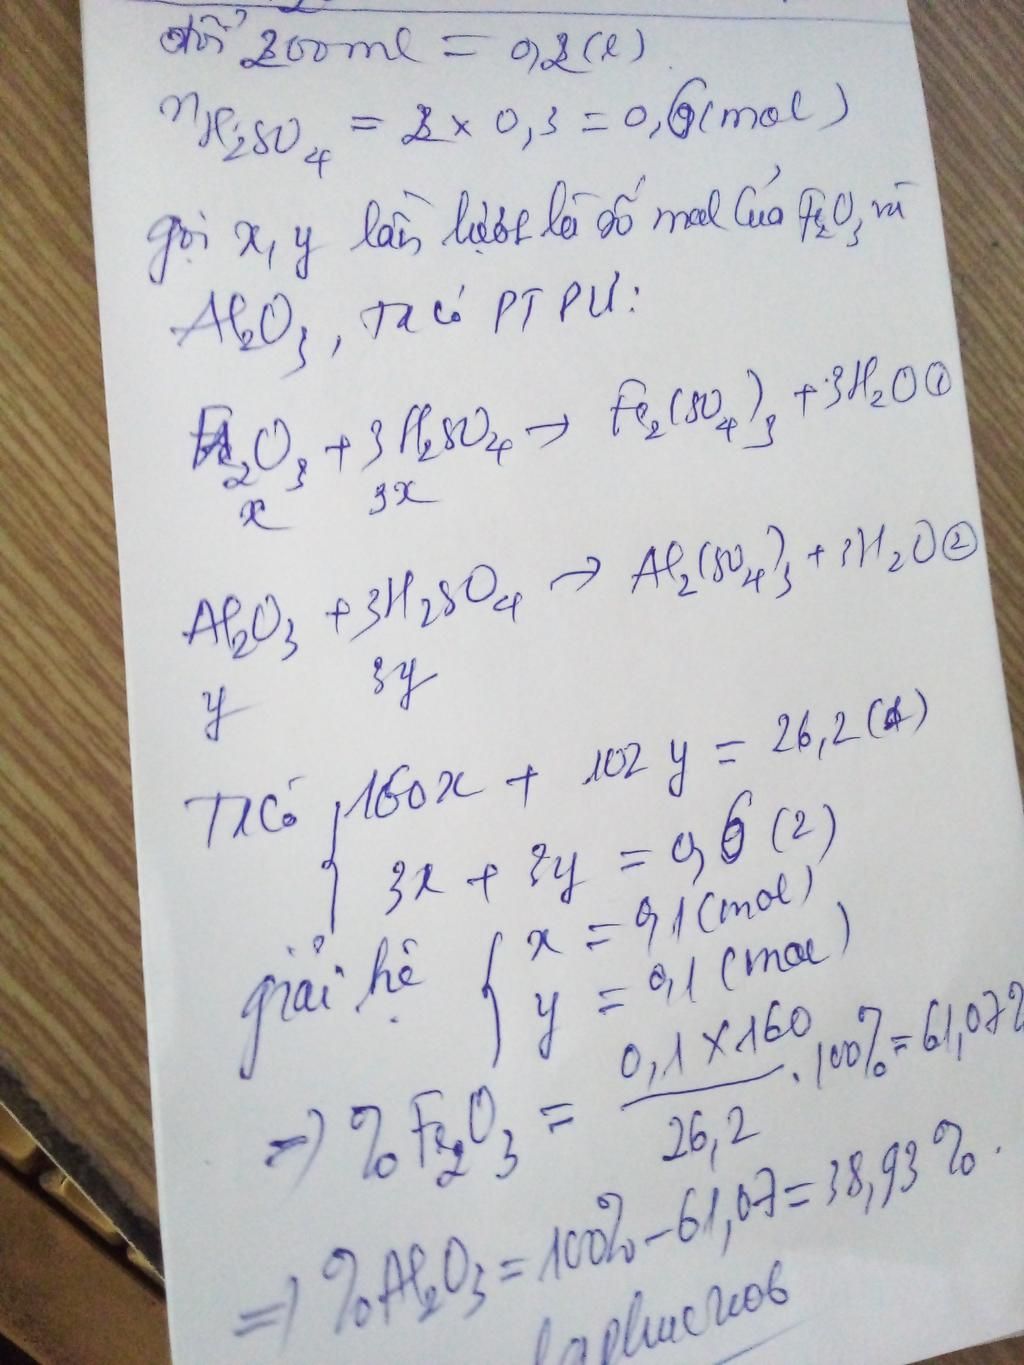 đổi 300ml = 0,3(l)
nH₂SO₄ = 2 × 0,3 = 0,6(mol)
gọi x, y lần lượt là số mol của Fe₂O₃ và
Al₂O₃, Ta có PTPƯ:
Fe₂O₃ + 3H₂SO₄ → Fe₂(SO₄)₃ + 3H₂O ①
x 3x
Al₂O₃ + 3H₂SO₄ → Al₂(SO₄)₃ + 3H₂O ②
y 3y
Ta có { 160x + 102y = 26,2 (1)
3x + 3y = 0,6 (2)
giải hệ { x = 0,1 (mol)
y = 0,1 (mol)
=> % Fe₂O₃ = 0,1 × 160 / 26,2 . 100% = 61,07%
=> % Al₂O₃ = 100% - 61,07 = 38,93 %.